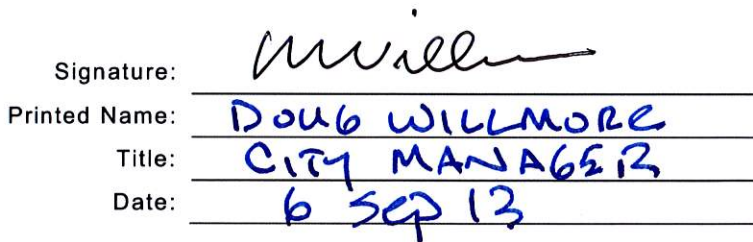 Signature:
Printed Name: DOUG WILLMORE
Title: CITY MANAGER
Date: 6 Sep 13